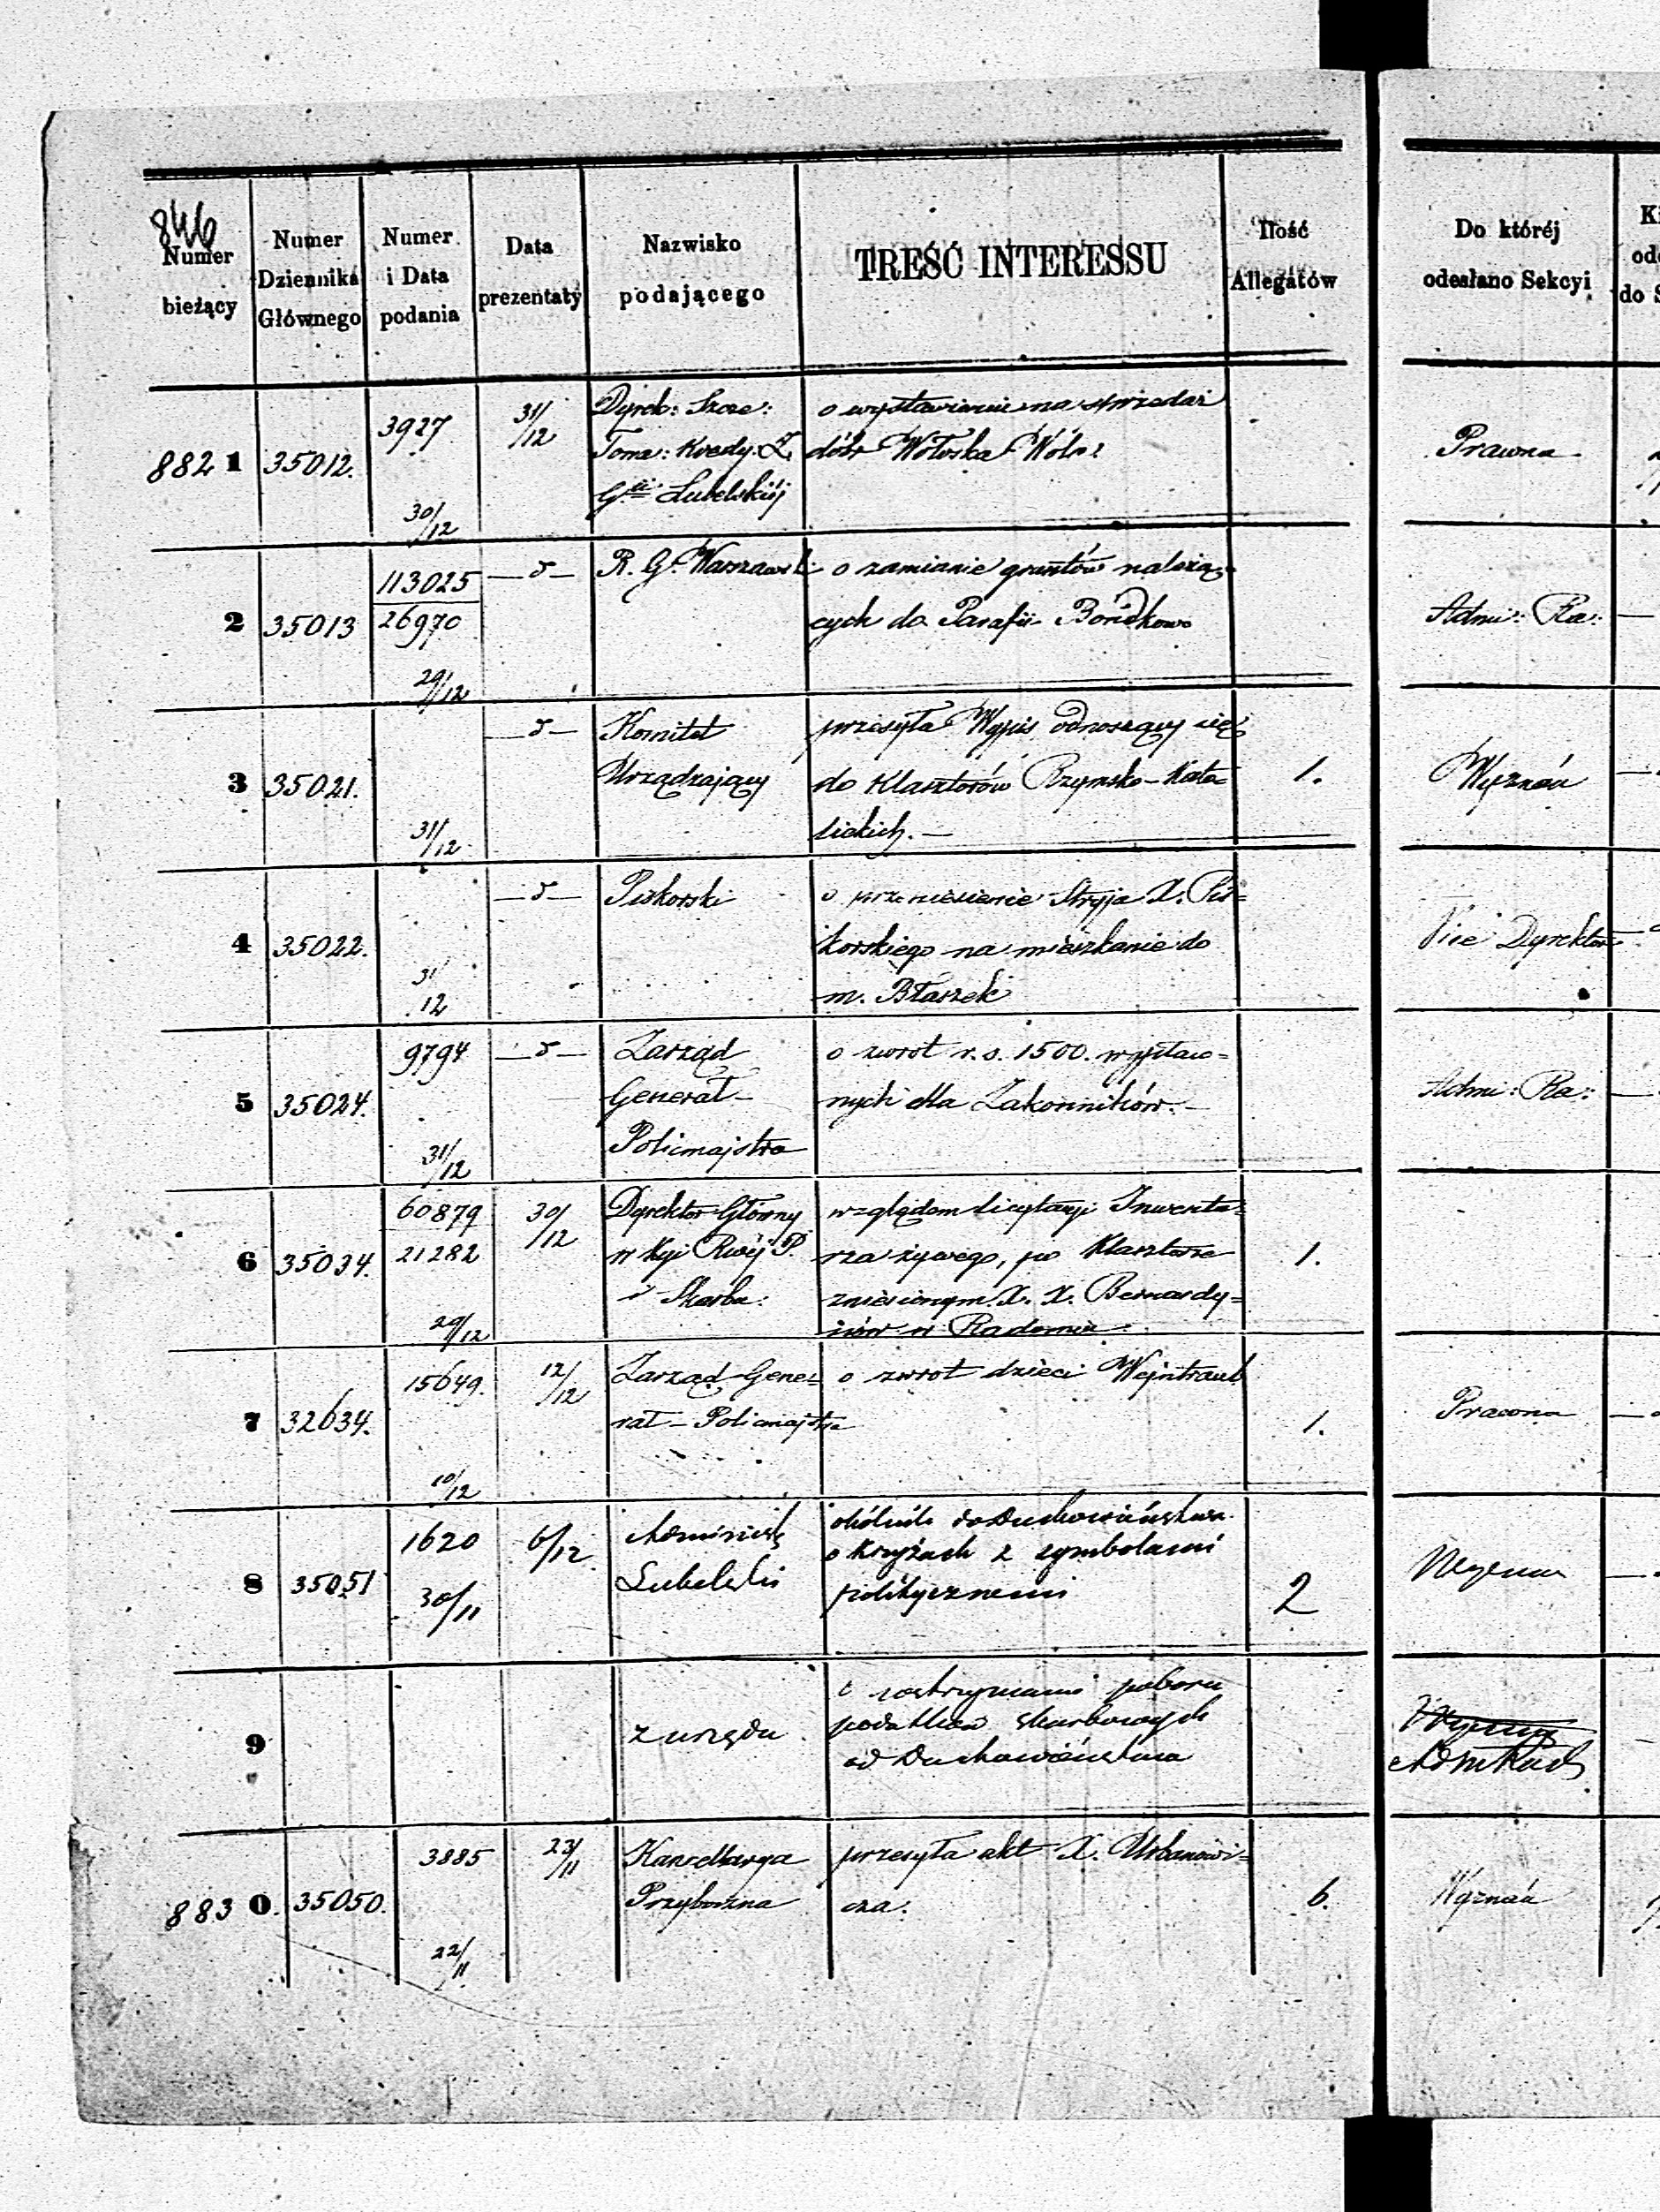 846
Numer
bieżący
Numer
Dziennika
Głównego
Numer
i Data
podania
Data
prezentaty
Nazwisko
podającego
TREŚĆ INTERESSU
Ilość
Allegatów
Do któréj
odesłano Sekcyi
882 1 35012. 3927 30/12 31/12
Dyrek: Szcze:
Towa: Kredy: Z.
G.ii Lubelskiéj
o wystawienie na sprzedaż
dóbr Wołoska Wóla
Prawna
2 35013 113025
26970
29/12 —d—
R. G. Warszaws.
o zamianie gruntów należą=
cych do Parafii
Admi: Ra: —
3 35021. 31/12 —d—
Komitet
Urządzający
przesyła Wypis odnoszący się
do Klasztorów Rzymsko-Kato
lickich. —
1.
Wyznań —
4 35022. 31
12 —d—
Piskorski
o przeniesienie Stryja X. Pis=
korskiego na mieszkanie do
m. Błaszek
Vice Dyrektor
5 35024. 9794 31/12 —d—
Zarząd
Generał-
Policmajstra
o zwrot r. s. 1500. wypłaco=
nych dla Zakonników. —
Admi: Ra: —
6 35034. 60879
21282
29/12 30/12
Dyrektor Główny
w Kyi Rwéj P.
i Skarbu:
względem licytacyi Inwenta=
rza żywego, po Klasztorze
zniesionym X. X. Bernardy=
nów w Radomiu.
1.
7 32634. 15649. 10/12 12/12
Zarząd Gene=
rał-Policmajstra
o zwrot dzieci Wejntraub
1.
Prawna —
8 35051 1620 30/11 6/12
Administ
Lubelski
okólnik do Duchowieństwa
o Krzyżach z symbolami
politycznemi
2
Wyznan —
9
z urzędu
o wstrzymanie poboru
podatków skarbowych
od Duchowieństwa
Adm Rach
883 0. 35050. 3885 22/11 23/11
Kancellarya
Przyboczna
przesyła akt X. Urbanowi=
cza.
6.
Wyznań